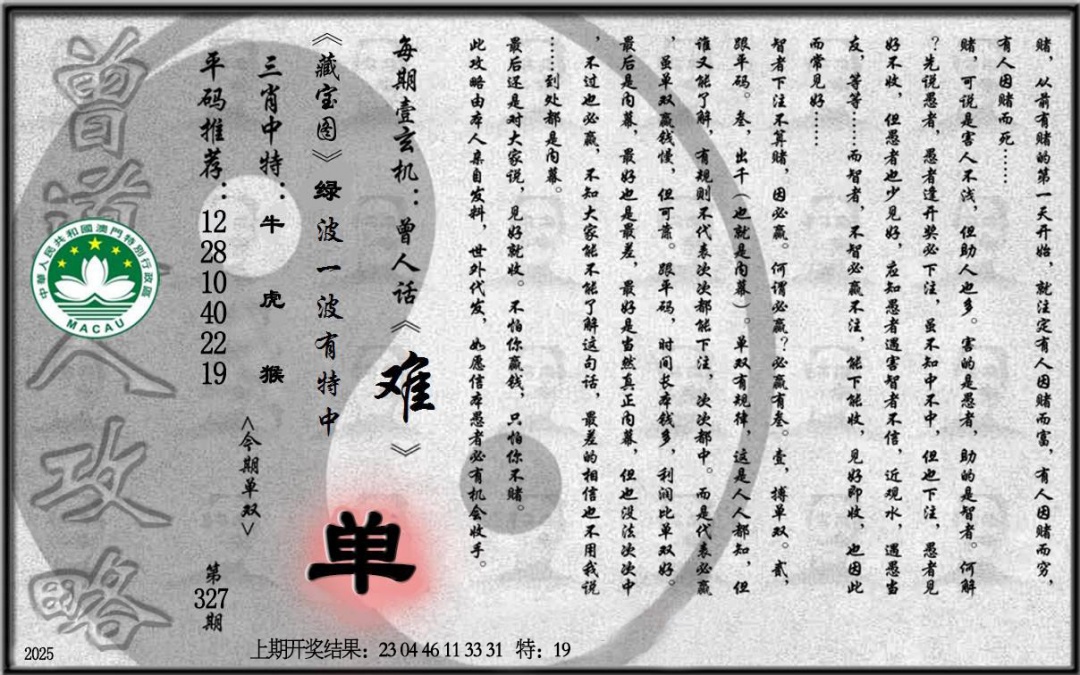 赌，从前有赌的第一天开始，就注定有人因赌而富，有人因赌而穷，
有人因赌而死……
赌，可说是害人不浅，但助人也多。害的是愚者，助的是智者。何解
？先说愚者，愚者逢开奖必下注，虽不知中不中，但也下注，愚者见
好不收，但愚者也少见好，应知愚者遇害智者不信，近观水，遇愚当
友，等等……而智者，不智必赢不注，能下能收，见好即收，也因此
而常见好……
智者下注不算赌，因必赢。何谓必赢？必赢有叁。壹，搏单双。贰，
跟平码。叁，出千（也就是内幕）。单双有规律，这是人人都知，但
谁又能了解，有规则不代表次次都能下注，次次都中。而是代表必赢
，虽单双赢钱慢，但可靠。跟平码，时间长本钱多，利润比单双好。
最后是内幕，最好也是最差，最好是当然真正内幕，但也没法次次中
，不过也必赢，不知大家能不能了解这句话，最差的相信也不用我说
……到处都是内幕。
最后还是对大家说，见好就收。不怕你赢钱，只怕你不赌。
此攻略由本人亲自发料，世外代发，如愿信本愚者必有机会收手。
每期壹玄机：曾人话《难》
《藏宝图》绿波一波有特中
单
三肖中特：牛虎猴
<今期单双>
平码推荐：12 28 10 40 22 19
第327期
曾道人攻略
中華人民共和國澳門特別行政區
MACAU
2025
上期开奖结果：23 04 46 11 33 31 特：19